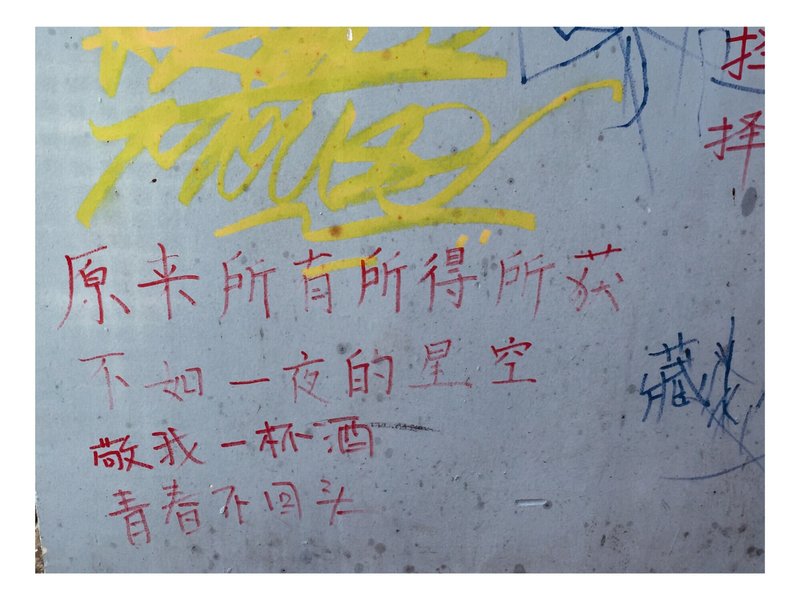 择
原来所有所得所获
不如一夜的星空
藏
敬我一杯酒
青春不回头